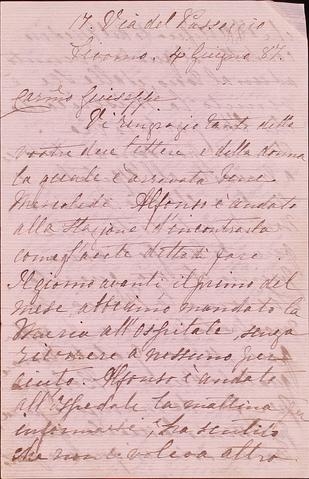 17. Via del Passeggio
Livorno. 4 Giugno 87.
Carmo Giuseppe
Vi ringrazio tanto delle
vostre due lettere e della donna
la quale è arrivata bene
Mercoledi. Alfonso è andato
alla stazione d'incontrarla
come gl'avete detto di fare.
Il giorno avanti il primo del
mese abbiamo mandato la
Maria all'ospitale senza
dire a nessuno per
. Alfonso è andato
all'ospedale la mattina
informarsi, ha sentito
che non ci voleva altro